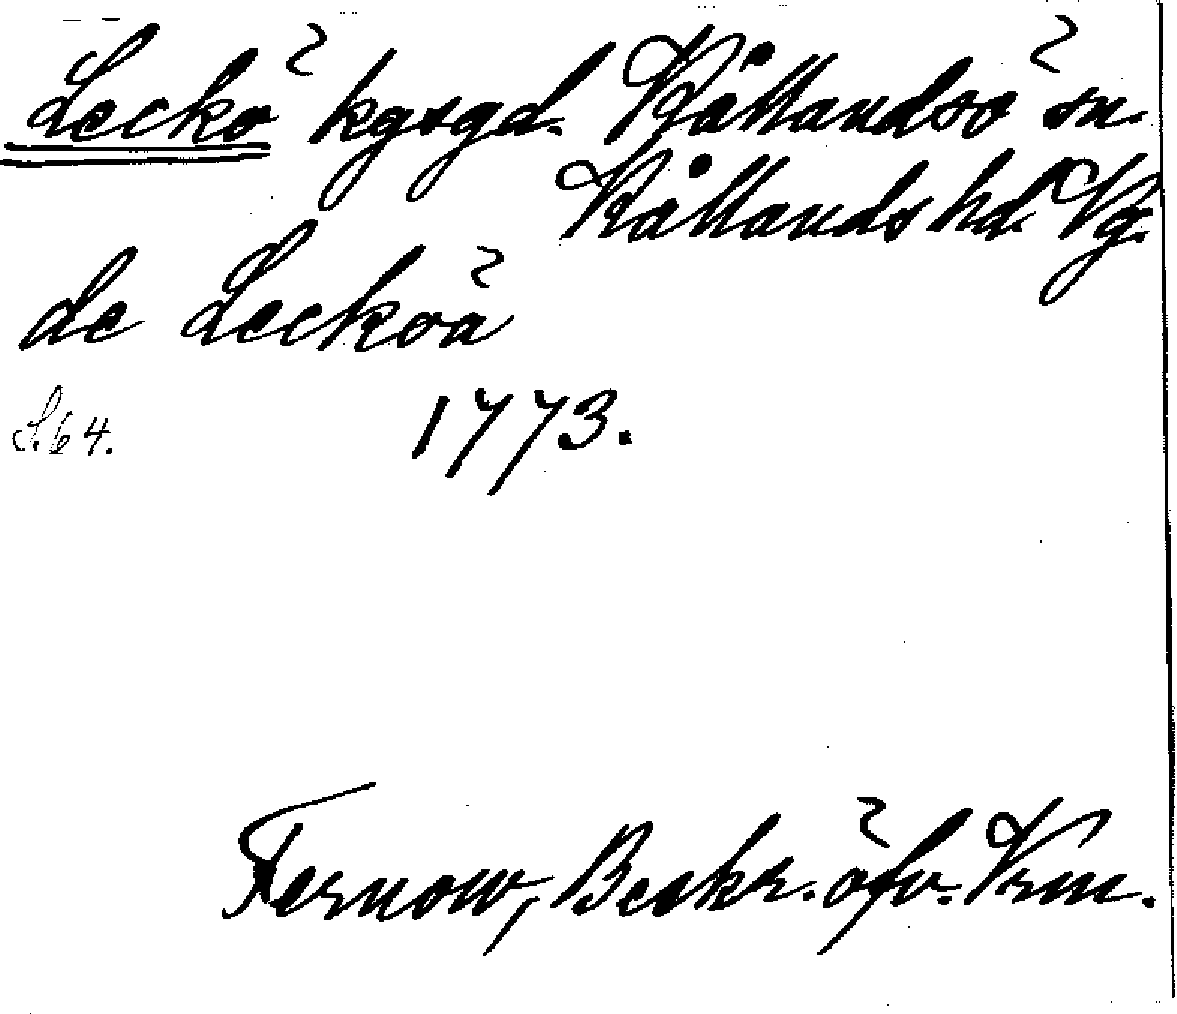 Leckö kgsgd. Kållandsö sn
Kållands hd. Vg.
de Lecköä
S. 64. 1773.
Fernow, Beskr. öfv. Vrm.